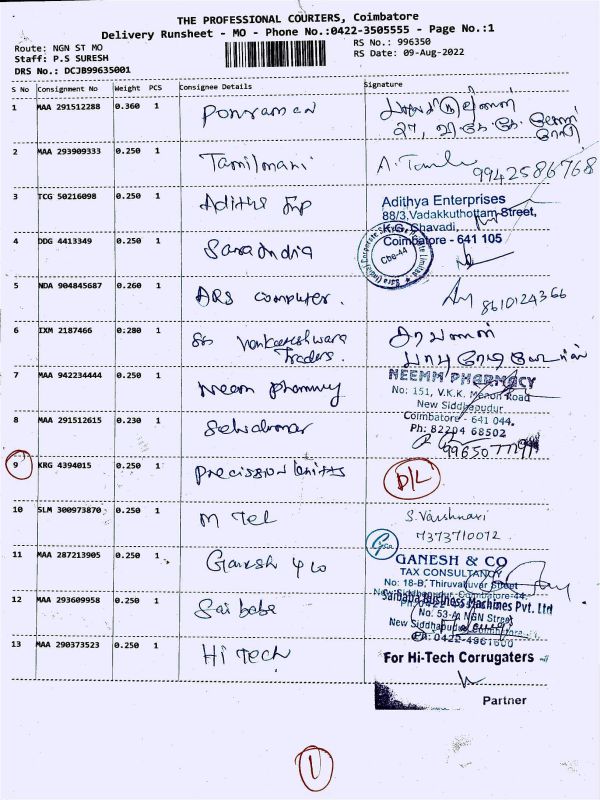 THE PROFESSIONAL COURIERS, Coimbatore
Delivery Runsheet - MO - Phone No.:0422-3505555 - Page No.:1
Route: NGN ST MO
RS No.: 996350
Staff: P.S SURESH
RS Date: 09-Aug-2022
DRS No.: DCJB99635001
S No Consignment No Weight PCS Consignee Details Signature
1 MAA 291512288 0.360 1 Ponraman
2 MAA 293909333 0.250 1 Tamilmani A. Tamil 9942586768
3 TCG 50216098 0.250 1 Aditha Enp
Adithya Enterprises
88/3,Vadakkuthottam Street,
K.G. Shavadi,
Coimbatore - 641 105
4 DDG 4413349 0.250 1 Sara India
Cbe-44
5 NDA 904845687 0.260 1 ARS computer. 8610124366
6 IXM 2187466 0.280 1 Sri Venkateshwara
Traders.
சரவணன்
7 MAA 942234444 0.250 1 Neem Pharmacy
NEEMM PHARMACY
No: 151, V.K.K. Menon Road
New Siddhapudur
Coimbatore - 641 044.
Ph: 82204 68502
8 MAA 291512615 0.230 1 Selvakumar
9 KRG 4394015 0.250 1 Precission D/L
10 SLM 300973870 0.250 1 M Tel S. Varshnavi
7373710072
11 MAA 287213905 0.250 1 Ganesh & co
GANESH & CO
TAX CONSULTANCY
No: 18-B, Thiruvalluvar Street
New Siddhapudur, Coimbatore-44.
12 MAA 293609958 0.250 1 Sai baba
Saibaba Business Machines Pvt. Ltd
No. 53-A NGN Street
New Siddhapudur, Coimbatore
Ph: 0422-4961600
13 MAA 290373523 0.250 1 Hi Tech
For Hi-Tech Corrugaters
Partner
1